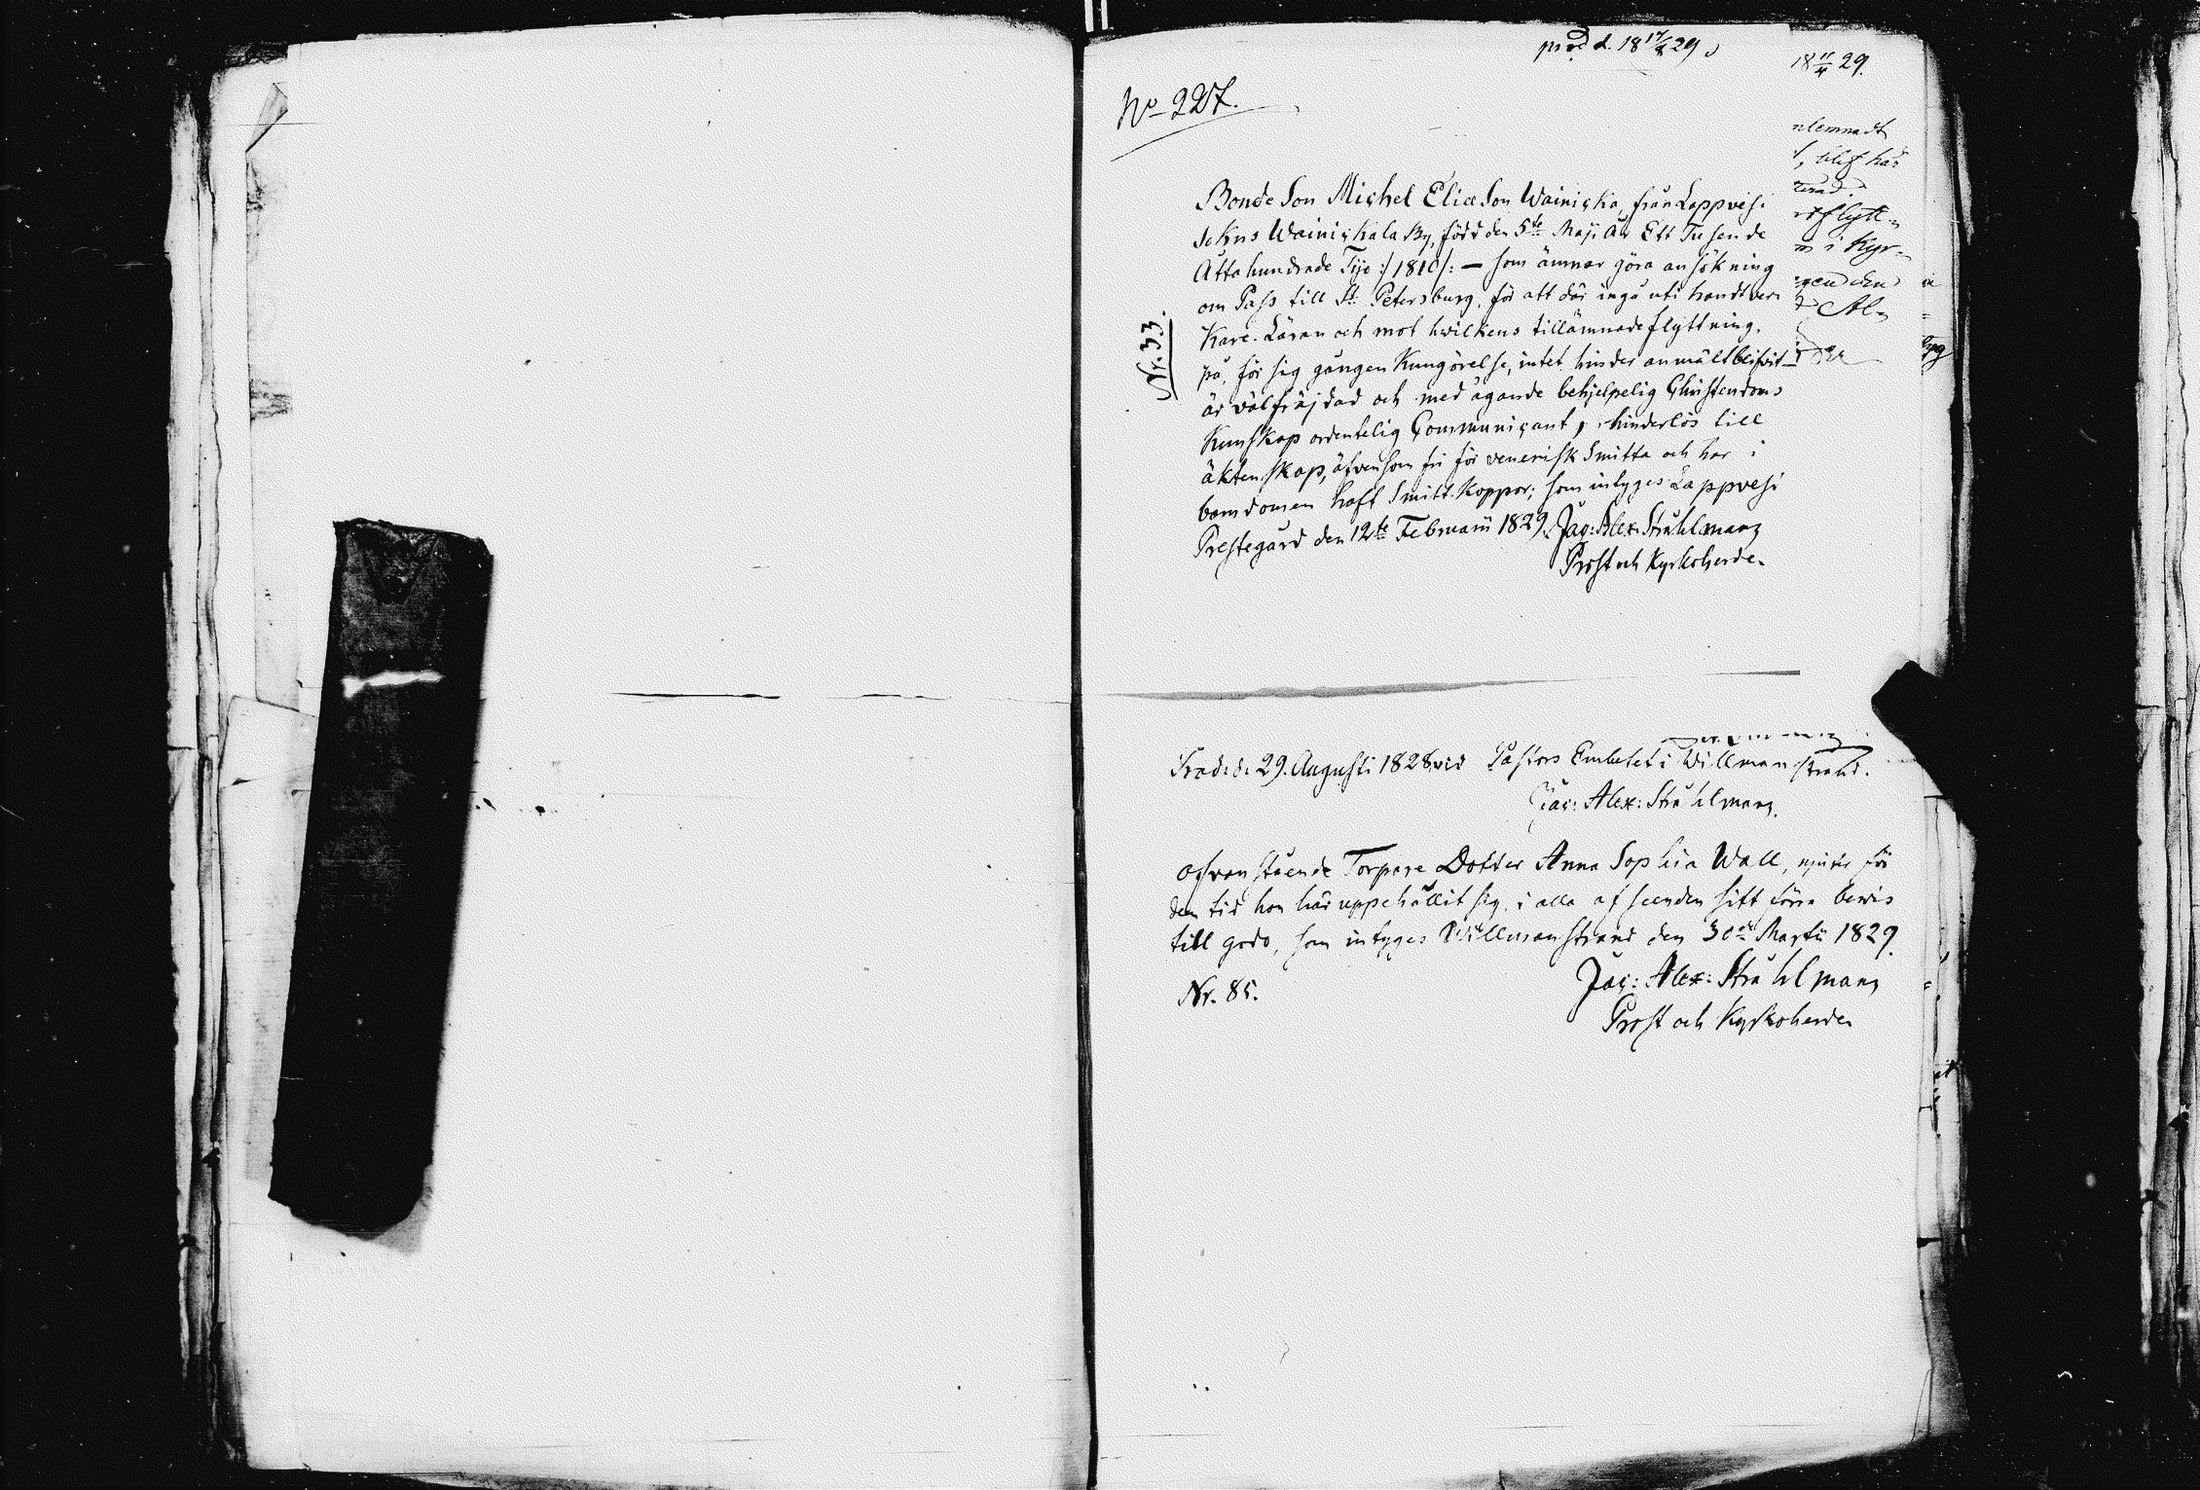 prod. d. 18 17/4 29
18 11/4 29.
No 227.
nlemnadt
, blif här
terad.
Bonde Son Michel Eliæ Son Wainicka, från Lappvesi
Sokns Wainickala By, född den 5te Maji År Ett Tusende
Åtta hundrade Tijo :/1810/: — som ämnar göra ansökning
om Pass till St. Petersburg, för att där ingå uti handtver
Kare Läran och mot hwilkens tillämnade flyttning,
på, för sig gången Kungörelse, intet hinder anmält blifvit
är välfräjdad och med ägande behjelpelig Christendoms
Kunskap ordentelig Communicant, hinderlös till
äktenskap, äfvensom fri för venerisk Smitta och har i
barndomen haft Smitt-Koppor; som intyges Lappvesi
Prestegård den 12te Februarii 1829. Jac: Alex: Stråhlmann
Prost och Kyrkoherde.
Nr. 33.
Prod: d: 29. Augusti 1828 vid Pastors Embetet i Willmanstrand.
Jac: Alex: Stråhlmann.
Ofvanstående Torpare Dotter Anna Sophia Wall, njuter för
den tid hon här uppehållit sig, i alla afseenden sitt förra bevis
till godo, som intyges Willmanstrand den 30de Martii 1829.
Nr. 85.
Jac: Alex: Stråhlmann
Prost och Kyrkoherde